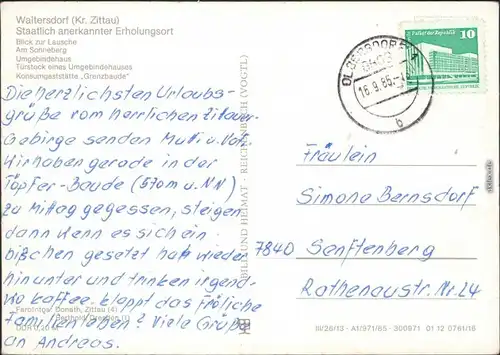 Waltersdorf (Kr. Zittau)
Staatlich anerkannter Erholungsort
Blick zur Lausche
Am Sonneberg
Umgebindehaus
Türstock eines Umgebindehauses
Konsumgaststätte „Grenzbaude"
Die herzlichsten Urlaubs-
grüße vom herrlichen Zitauer
Gebirge senden Mutti u. Vati
Wir haben gerade in der
Töpfer-Baude (570m u. NN)
zu Mittag gegessen, steigen
dann wenn es sich ein
bißchen gesetzt hat wieder
hinunter und trinken irgend-
wo kaffee. klappt das Fröliche
Familienleben? Viele Grüße
an Andreas.
Farbfotos: Donath, Zittau (4)
Berthold, Dresden (1)
BILD UND HEIMAT · REICHENBACH (VOGTL)
16.9.85
b
Palast der Republik
10
Fräulein
Simone Bernsdorf
7840 Senftenberg
Rathenaustr. Nr. 24
III/26/13 · A1/971/85 · 300971 01 12 0761/16